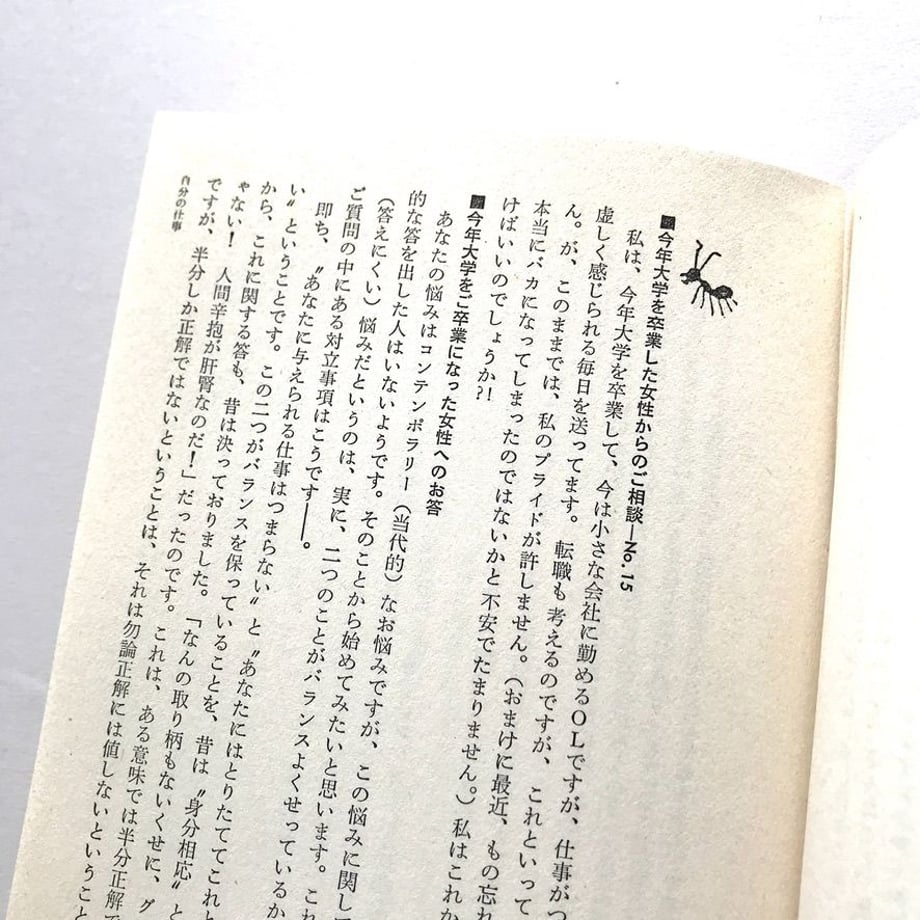 ■今年大学を卒業した女性からのご相談—No. 15
私は、今年大学を卒業して、今は小さな会社に勤めるOLですが、仕事がつ
虚しく感じられる毎日を送ってます。転職も考えるのですが、これといって
ん。が、このままでは、私のプライドが許しません。（おまけに最近、もの忘れ
本当にバカになってしまったのではないかと不安でたまりません。）私はこれか
けばいいのでしょうか？！
■今年大学をご卒業になった女性へのお答
あなたの悩みはコンテンポラリー（当代的）なお悩みですが、この悩みに関して
的な答を出した人はいないようです。そのことから始めてみたいと思います。これ
（答えにくい）悩みだというのは、実に、二つのことがバランスよくせっているか
ご質問の中にある対立事項はこうです——。
即ち、〝あなたに与えられる仕事はつまらない〟と〝あなたにはとりたててこれと
い〟ということです。この二つがバランスを保っていることを、昔は〝身分相応〟と
から、これに関する答も、昔は決っておりました。「なんの取り柄もないくせに、グ
ゃない！　人間辛抱が肝腎なのだ！」だったのです。これは、ある意味では半分正解で
ですが、半分しか正解ではないということは、それは勿論正解には値しないということ
自分の仕事